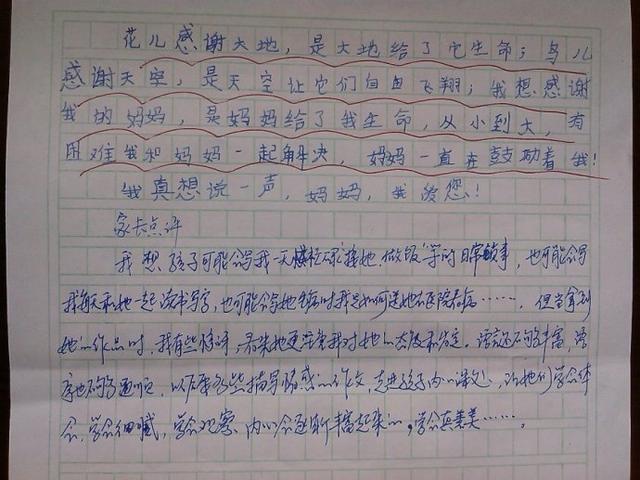 花儿感谢大地，是大地给了它生命；鸟儿
感谢天空，是天空让它们自由飞翔；我想感谢
我的妈妈，是妈妈给了我生命，从小到大，有
困难我和妈妈一起解决，妈妈一直在鼓励着我！
我真想说一声，妈妈，我爱您！
家长点评
我想孩子可能会写我一天忙碌接她、做饭等的日常琐事，也可能会写
我每天和她一起读书写字，也可能会写她生病时我是如何送她去医院看病……，但当拿到
她的作品时，我有些惊讶，原来她更注重我对她的态度和肯定。语言还不够丰富，语
序也不够通顺，以后要多些描写情感的作文，走进孩子内心深处，让她们学会体
会，学会细腻，学会观察、内心会逐渐丰富起来的，学会真善美……。